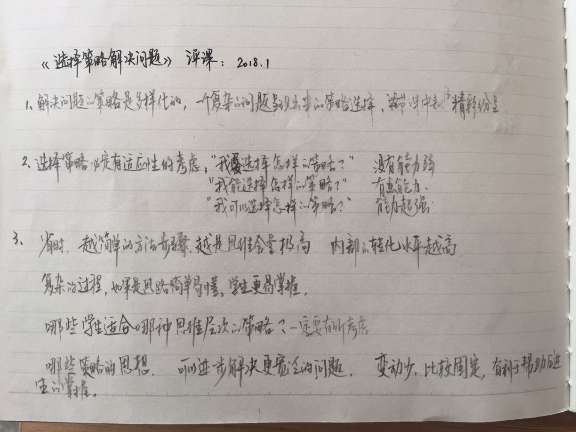 《选择策略解决问题》 评课：2018.1
1、解决问题的策略是多样化的，一个复杂的问题 的策略选择， 课中 精彩纷呈
2、选择策略必定有适应性的考虑，"我要选择怎样的策略？" 没有能力强
"我能选择怎样的策略？" 有点能力.
"我可以选择怎样的策略？" 能力超强.
3、 省时、越简单的方法步骤，越是思维含量极高 内部的转化水平越高
复杂的过程，如果是思路简单易懂，学生更易掌握.
哪些学生适合哪种思维层次的策略？一定要有所考虑
哪些策略的思想. 可以进步解决更宽泛的问题. 变动少、比较固定，有利于帮助后进
生的掌握.